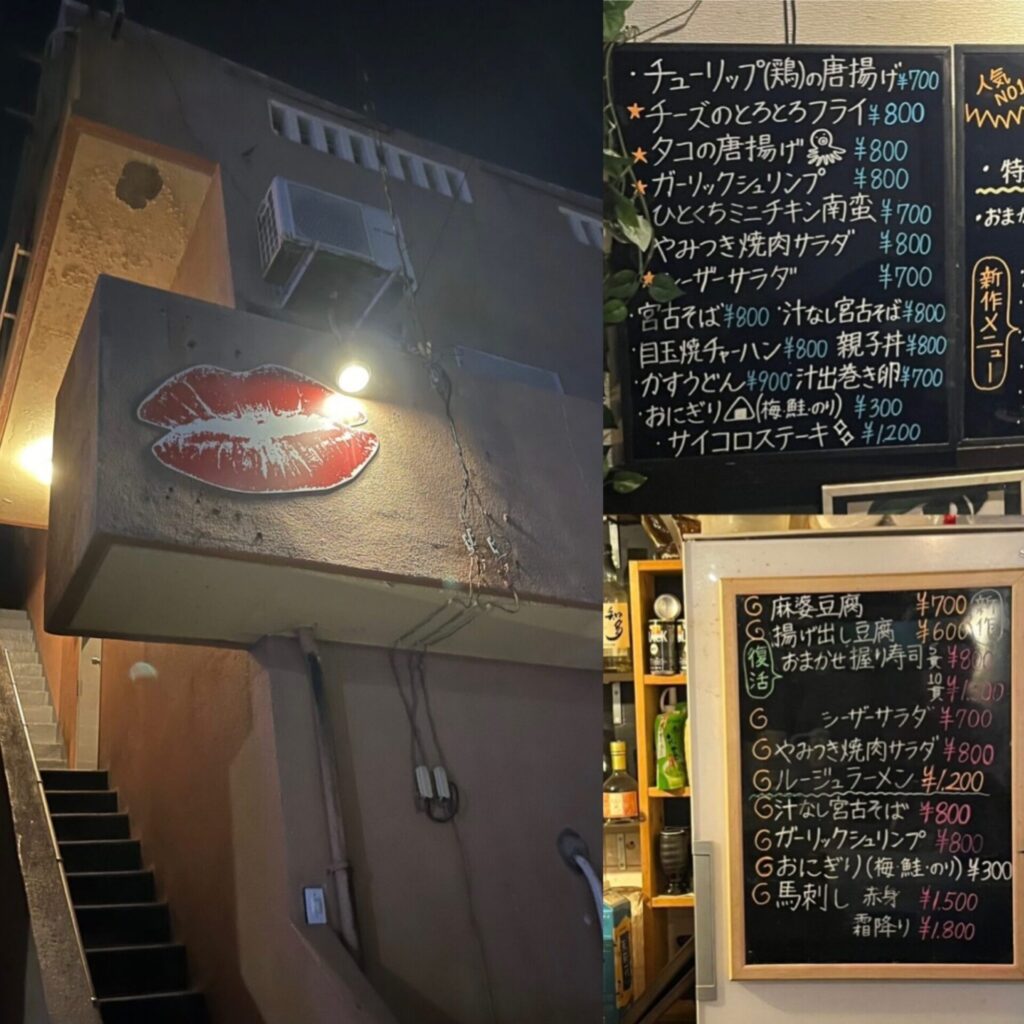 ・チューリップ(鶏)の唐揚げ¥700
★チーズのとろとろフライ¥800
★タコの唐揚げ ¥800
★ガーリックシュリンプ ¥800
ひとくちミニチキン南蛮 ¥700
やみつき焼肉サラダ ¥800
ーザーサラダ ¥700
・宮古そば¥800 ・汁なし宮古そば¥800
・目玉焼チャーハン¥800 親子丼¥800
・かすうどん¥900 汁出巻き卵¥700
・おにぎり(梅・鮭・のり) ¥300
・サイコロステーキ ¥1200
人気
NO1
・特
・おまか
新作メニュー
知多
新作
麻婆豆腐 ¥700
揚げ出し豆腐 ¥600
復活
おまかせ握り寿司 5貫 ¥800
10貫
シーザーサラダ ¥700
やみつき焼肉サラダ ¥800
ルージュラーメン ¥1.200
汁なし宮古そば ¥800
ガーリックシュリンプ ¥800
おにぎり(梅・鮭・のり) ¥300
馬刺し 赤身 ¥1.500
霜降り ¥1.800